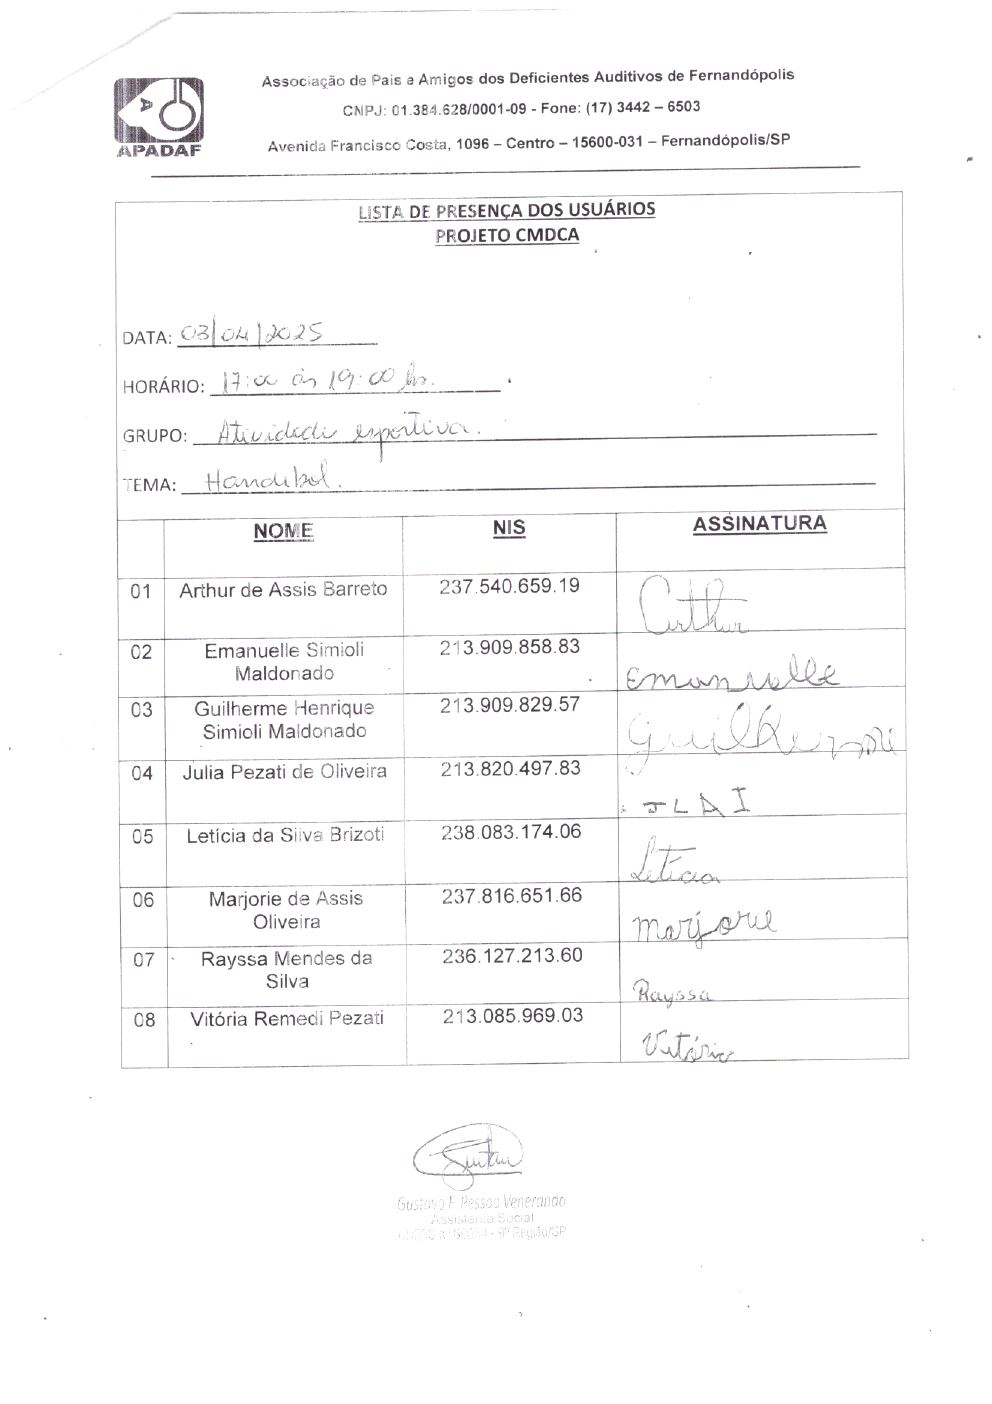 Associação de Pais e Amigos dos Deficientes Auditivos de Fernandópolis
CNPJ: 01.384.628/0001-09 - Fone: (17) 3442 – 6503
Avenida Francisco Costa, 1096 – Centro – 15600-031 – Fernandópolis/SP
APADAF
LISTA DE PRESENÇA DOS USUÁRIOS
PROJETO CMDCA
DATA: 03/04/2025
HORÁRIO: 17:00 às 19:00 hs.
GRUPO: Atividade esportiva.
TEMA: Handebol.
NOME NIS ASSINATURA
01 Arthur de Assis Barreto 237.540.659.19 Arthur
02 Emanuelle Simioli Maldonado 213.909.858.83 Emanuelle
03 Guilherme Henrique Simioli Maldonado 213.909.829.57 Guilherme
04 Julia Pezati de Oliveira 213.820.497.83 JLAI
05 Letícia da Silva Brizoti 238.083.174.06 Letícia
06 Marjorie de Assis Oliveira 237.816.651.66 Marjorie
07 Rayssa Mendes da Silva 236.127.213.60 Rayssa
08 Vitória Remedi Pezati 213.085.969.03 Vitória
Gustavo F. Pessoa Venerando
Assistente Social
9ª Região/SP